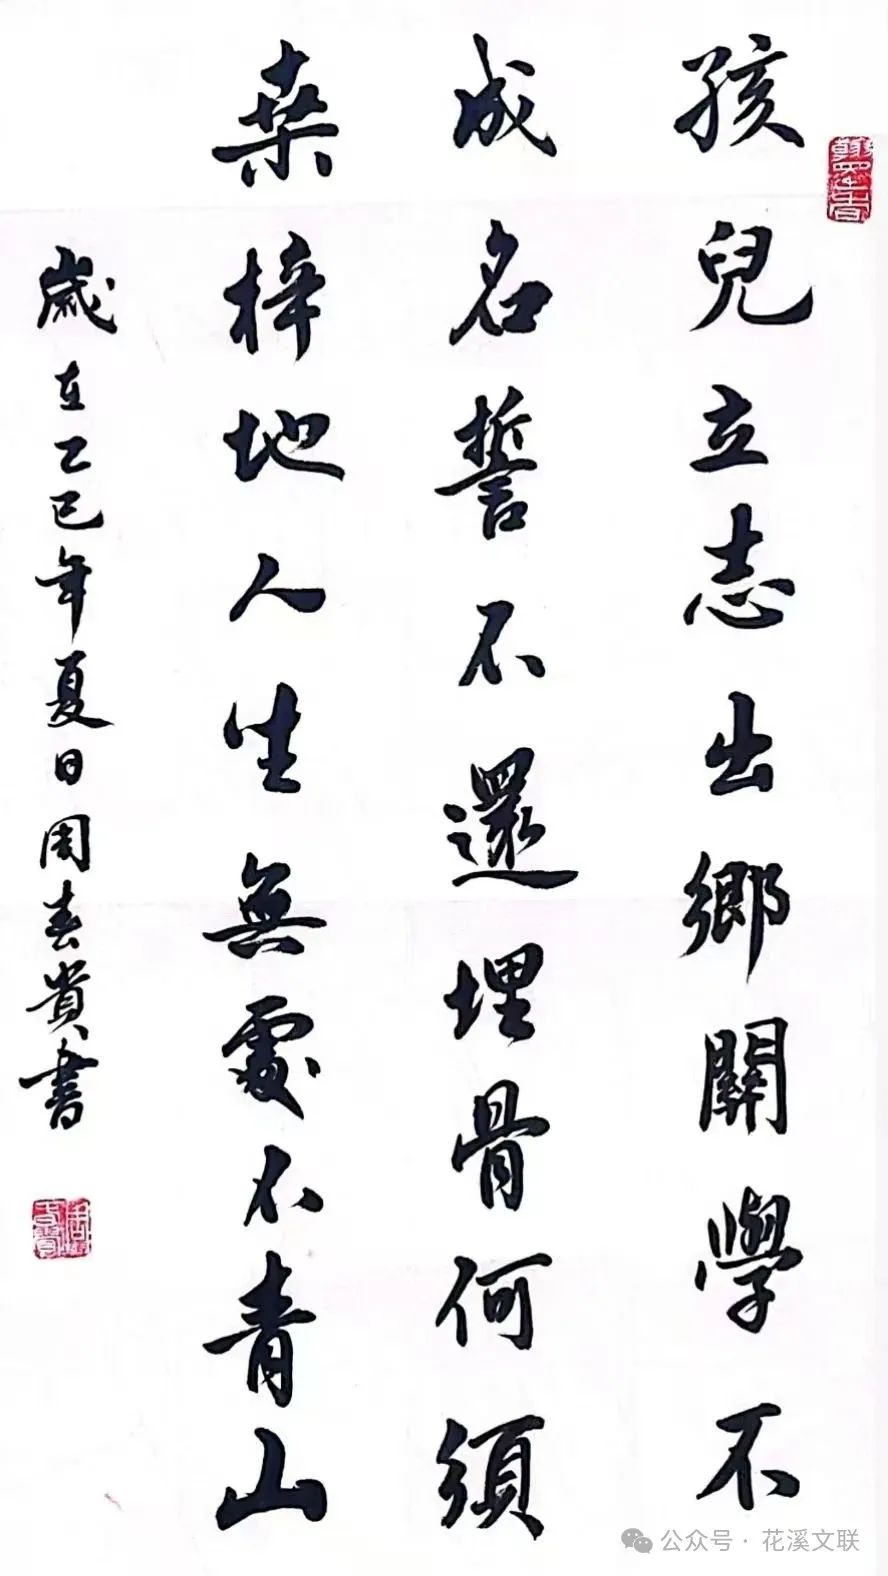 孩兒立志出鄉關學不
成名誓不還埋骨何須
桑梓地人生無處不青山
歲在乙巳年夏日周春貴書
公众号·花溪文联